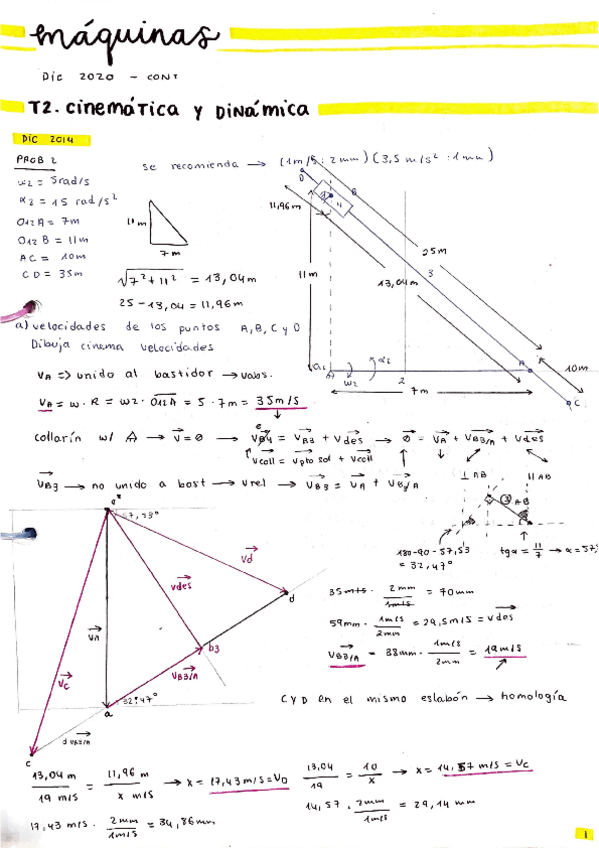 máquinas
Dic 2020 - CONT
T2. cinemática y DINámica
DIC 2014
PROB 2
se recomienda → (1m/s : 2mm) (3,5 m/s² : 1mm)
ω2 = 5rad/s
α2 = 15 rad/s²
O12A = 7m
O12B = 11m
AC = 10m
CD = 35m
11m
7m
√7²+11² = 13,04m
25-13,04 = 11,96m
D
B
4
11,96m
25m
3
13,04m
11m
ω2
α2
2
A
10m
C
7m
a) velocidades de los puntos A,B,C y D
Dibuja cinema velocidades
VA => unido al bastidor → Vabs.
VA = ω·R = ω2·O12A = 5·7m = 35m/s
collarín w/ A → V=0 → VB4 = VB3 + Vdes → 0 = VA + VB3/A + Vdes
Vcoll = Vpto sol + Vcoll
VB3 → no unido a bast → Vrel → VB3 = VA + VB/A
⊥ AB
|| AB
AB
180-90-57,53
= 32,47°
tgα = 11/7 → α = 57,
o*
57,53°
Vd
Vdes
VA
d
b3
VB3/A
VC
a
32,47°
c
35m/s · 2mm/1m/s = 70mm
59mm · 1m/s/2mm = 29,5m/s = Vdes
VB3/A - 38mm · 1m/s/2mm = 19m/s
C y D en el mismo eslabón → homología
13,04 m/19 m/s = 11,96 m/x m/s → x = 17,43 m/s = VD
13,04/19 = 10/x → x = 14,57 m/s = VC
17,43 m/s · 2mm/1m/s = 34,86mm
14,57 · 2mm/1m/s = 29,14 mm
1